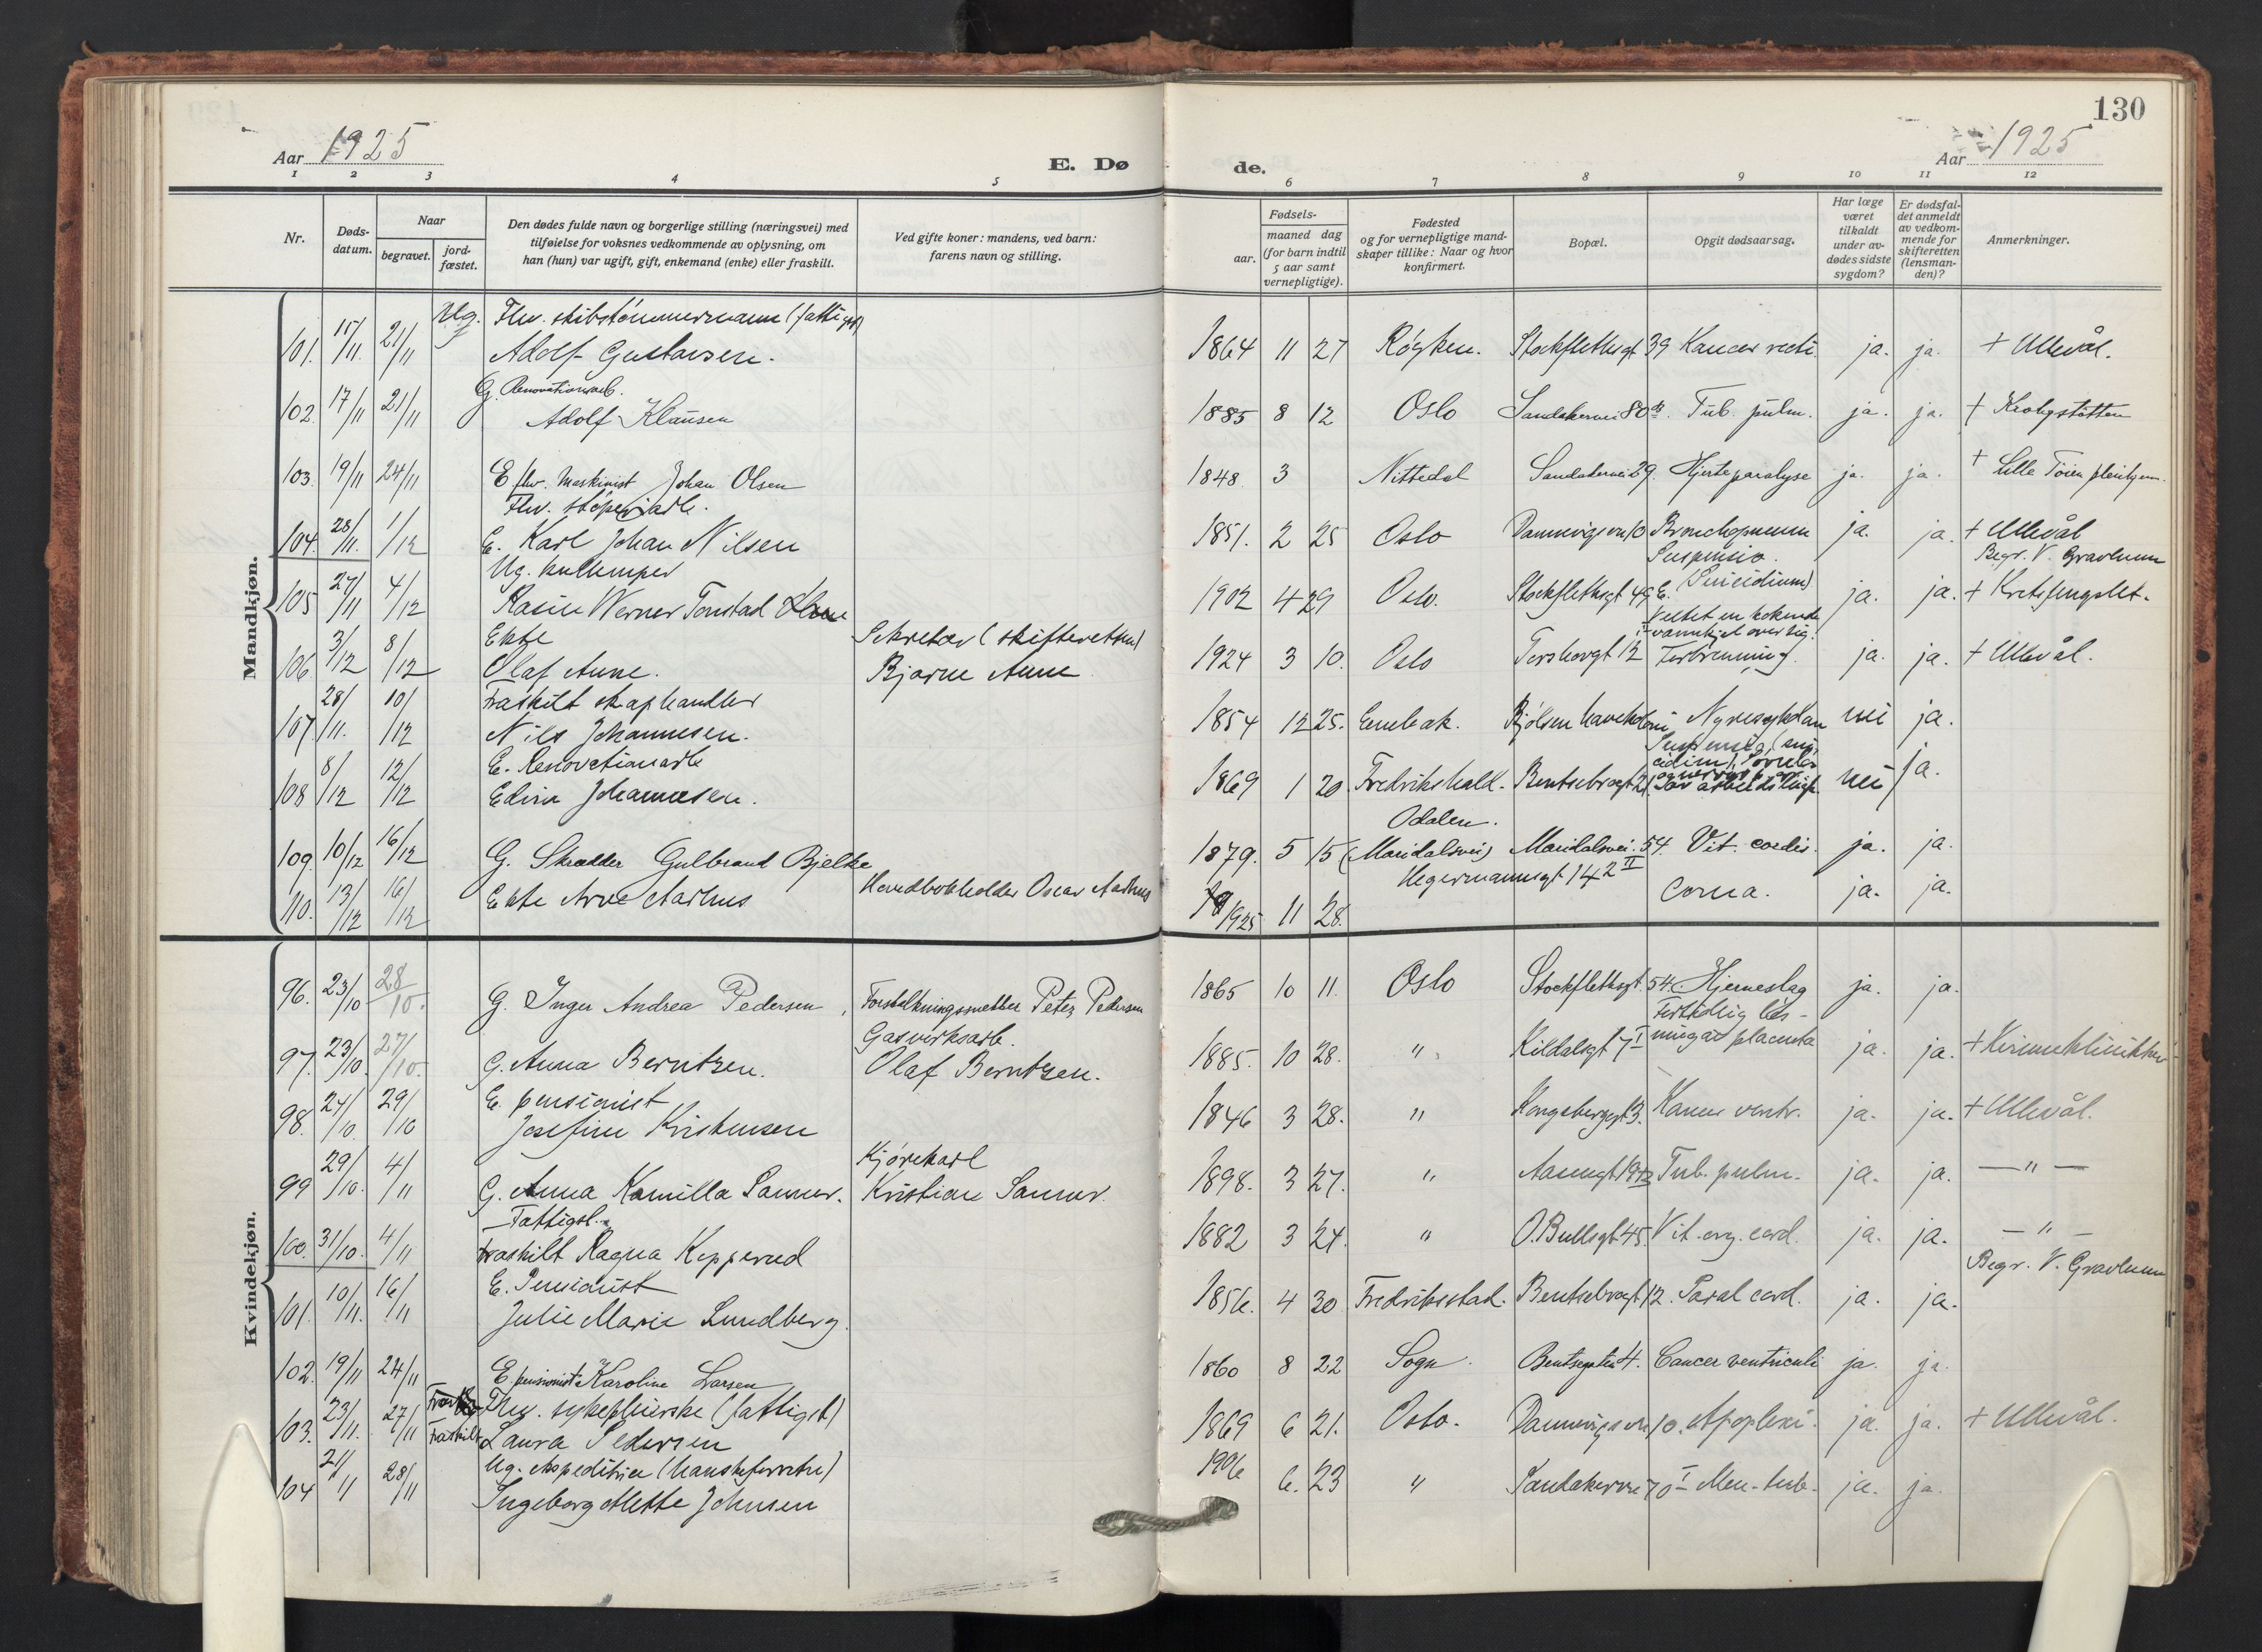 130
Aar 1925
E. Dø de.
Aar 1925
1 2 3 4 5 6 7 8 9 10 11 12
Nr.
Døds-datum.
Naar
begravet.
jord-fæstet.
Den dødes fulde navn og borgerlige stilling (næringsvei) med
tilføielse for voksnes vedkommende av oplysning, om
han (hun) var ugift, gift, enkemand (enke) eller fraskilt.
Ved gifte koner: mandens, ved barn:
farens navn og stilling.
Fødsels-
aar.
maaned dag
(for barn indtil
5 aar samt
vernepligtige).
Fødested
og for vernepligtige mand-
skaper tillike: Naar og hvor
konfirmert.
Bopæl.
Opgit dødsaarsag.
Har læge
været
tilkaldt
under av-
dødes sidste
sygdom?
Er dødsfal-
det anmeldt
av vedkom-
mende for
skifteretten
(lensman-
den)?
Anmerkninger.
Mandkjøn.
Ug. Fhv. skibstømmermann (fattigst)
101. 15/11 21/11 Adolf Gustavsen. 1864 11 27 Røyken. Stockflethsgt 39 Kancer recti ja. ja. + Ullevål.
G. Renovationsarb.
102. 17/11 21/11 Adolf Klausen 1885 8 12 Oslo Sandakervei 80 Tub. pulm. ja. ja. + Krohgstøtten
103. 19/11 24/11 E fhv. Maskinist Johan Olsen 1848 3 Nittedal Sandakervei 29. Hjerteparalyse ja. ja. + Lille Tøien pleiehjem.
Fhv. støperiarb.
104. 28/11. 1/12 E. Karl Johan Nilsen 1851. 2 25 Oslo Dannevigsvn 10 Bronchopneum ja. ja. + Ullevål
Begr. V. Gravlund
Ug. kullemper Suspensio.
105 27/11 4/12 Kasin Werner Tonstad 1902 4 29 Oslo. Stockflethsgt 49 E. (Suicidium) ja. ja. + Kretsfengslet.
Ekte Sekretær (skifteretten) Veltet en kokende
vannkjel over sig.
106. 3/12 8/12 Olaf Aune. Bjarne Aune 1924 3 10. Oslo Torshovgt 12 Forbrenning. ja. ja. + Ullevål.
Fraskilt skaphandler
107. 28/11. 10/12 Nils Johannesen. 1854 12 25. Enebak. Bjølsen havekoloni Nyresykdom nei ja.
E. Renovationarb Suspensio (sui-
cidium).
108 8/12 12/12 Edvin Johannesen. 1869 1 20 Fredrikshald. Bentsebrogt 21 nei ja.
Odalen.
109. 10/12 16/12 G. Skrædder Gulbrand Bjelke 1879. 5 15 (Maridalsvei) Maridalsvei. 54. Vit. cordis. ja. ja.
Hegermannsgt 14 2 II
110. 13/12 16/12 Ekte Arve Aarhus Handbokholder Oscar Aarhus 1925 11 28. Coma. ja. ja.
Kvindekjøn.
96. 23/10 28/10. G. Inger Andrea Pedersen, Forstelkningsmetter Peter Pedersen 1865 10 11. Oslo Stockflethsgt. 54. Hjerneslag ja. ja.
Gasverksarb. Fortidlig løs-
97. 23/10. 27/10. G. Anna Berntzen. Olaf Berntzen. 1885. 10 28. " Kildalsgt 7 I ning av placenta ja. ja. + Kvinneklinikken
E. pensionist
98. 24/10 29/10 Josefine Kristensen 1846 3 28. " Kongsbergsgt 3. Kancer ventr. ja. ja. + Ullevål.
Kjørekarl
99 29/10. 4/11 G. Anna Kamilla Sanner. Kristian Sanner. 1898. 3 27. " Aasengt Tub. pulm. ja. ja. — " —
Fattigst.
100. 31/10. 4/11 Fraskilt Ragna Kopperud 1882 3 24. " O. Bullsgt 45. Vit. org. cord. ja. ja. — " —
Begr. V. Gravlund
E. Pensionist
101. 10/11. 16/11 Julie Marie Lundberg. 1856. 4 30 Fredriksstad. Bentsebrogt. 12. Paral cord. ja. ja.
102. 19/11 24/11 E. pensionist Karoline Larsen 1860 8 22 Sogn. Bentsegaten 4. Cancer ventriculi ja. ja.
Fhv. sykepleierske (fattigst)
103. 23/11. 27/11 Fraskilt Laura Pedersen 1869 6 21. Oslo. Dannevigsvn 10. Apoplexi. ja. ja. + Ullevål.
Ug. ekspeditrice (hanskeforretn)
104 21/11 28/11 Ingeborg Mette Johnsen 1906 6. 23 " Sandakervei 70 I Men. tub. ja. ja.